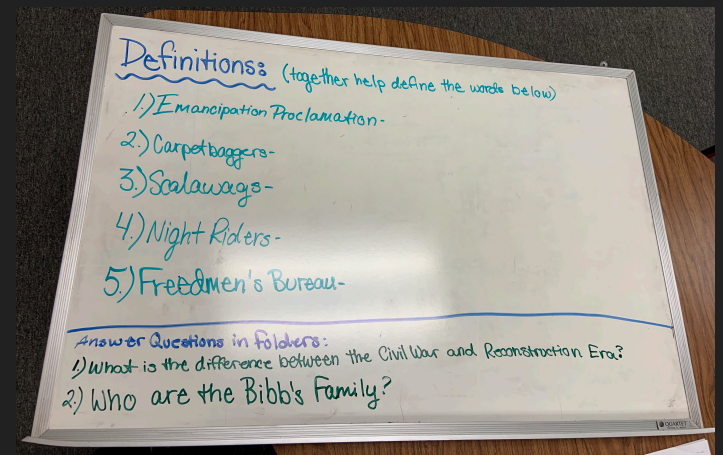 Definitions: (together help define the words below)
1.) Emancipation Proclamation-
2.) Carpetbaggers-
3.) Scalawags-
4.) Night Riders-
5.) Freedmen's Bureau-
Answer Questions in Folders:
1.) What is the difference between the Civil War and Reconstruction Era?
2.) Who are the Bibb's Family?
QUARTET